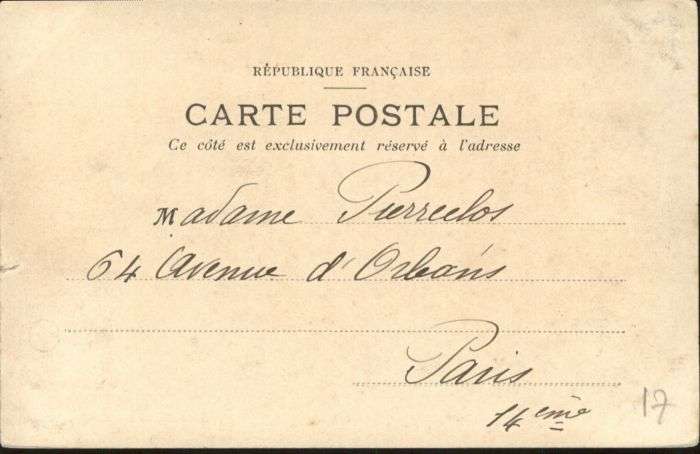 RÉPUBLIQUE FRANÇAISE
CARTE POSTALE
Ce côté est exclusivement réservé à l'adresse
Madame Pierrelos
64 Avenue d'Orléans
Paris
14ème
17